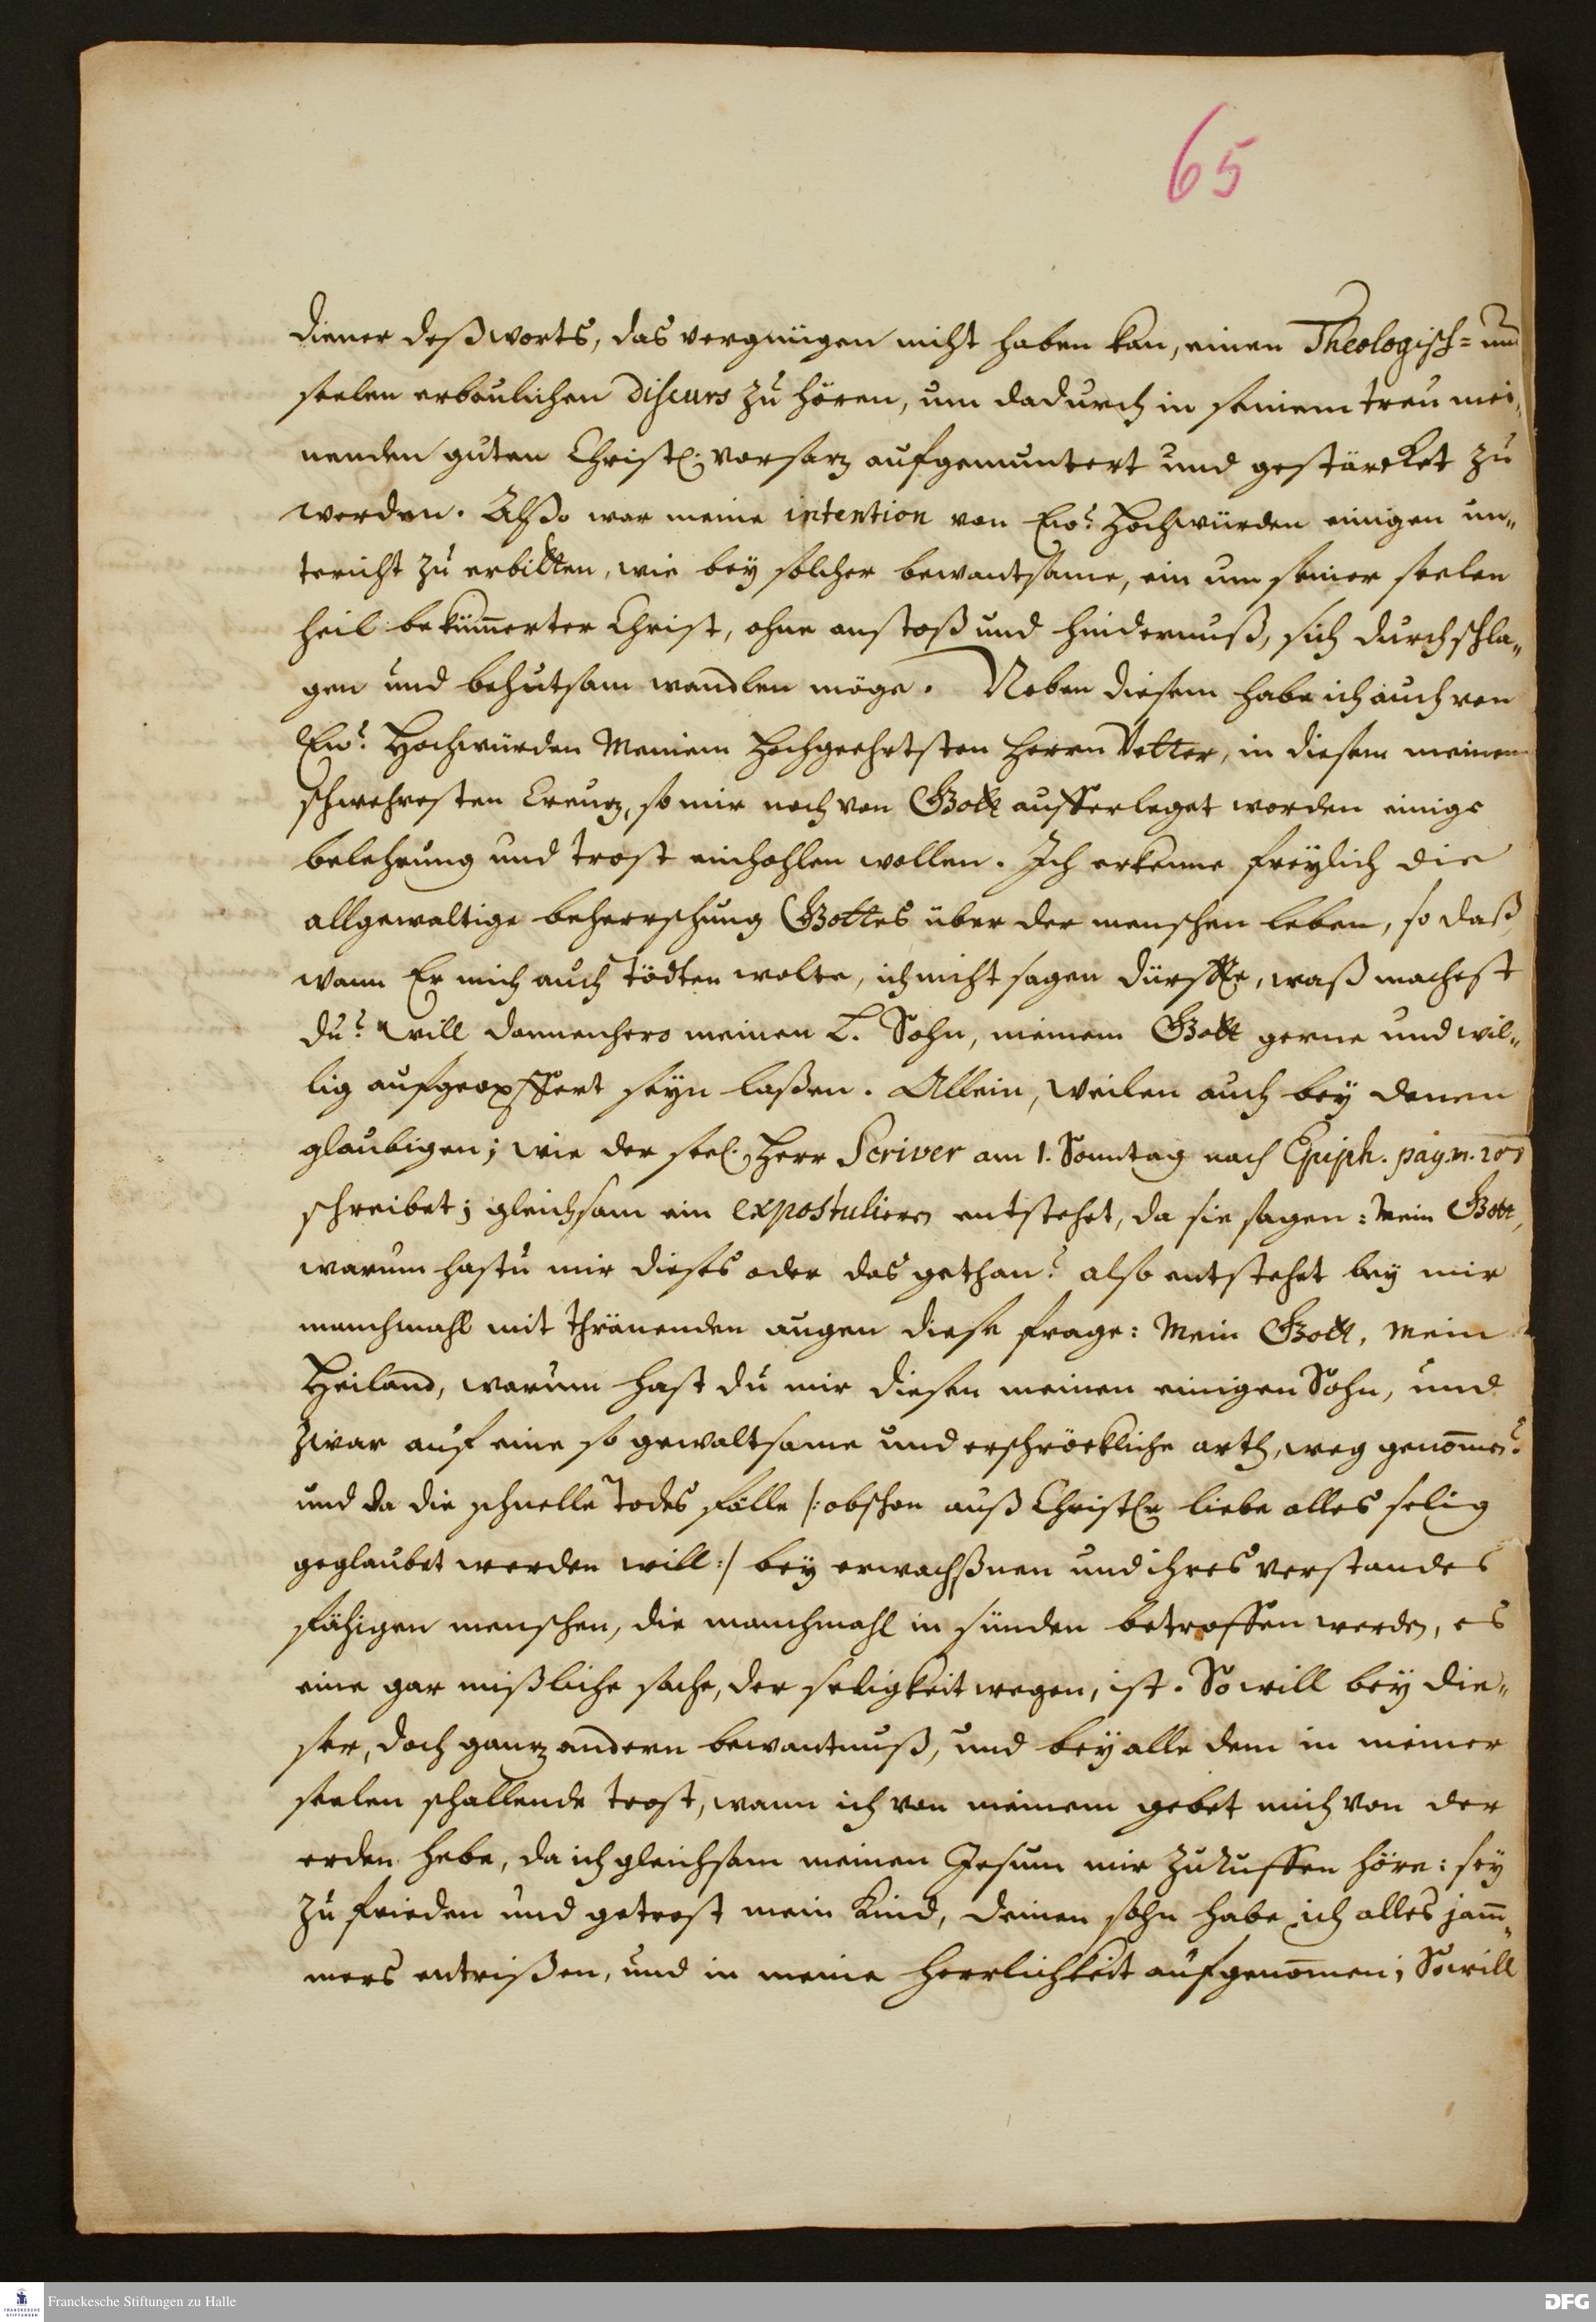 65
diener deß worts, das vergnügen nicht haben kan, einen Theologisch= und
seelen erbaulichen discurs zu hören, um dadurch in seinem treu mei„
nenden guten Christl. vorsaz aufgemuntert und gestärcket zu
werden. Alßo war meine intention von Ew.ʳ Hochwürden einigen un„
tericht zu erbitten, wie bey solcher bewantsame, ein um seiner seelen
heil bekümerter Christ, ohne anstoß und hindernuß, sich durchschla„
gen und behutsam wandlen möge. Neben diesem habe ich auch von
Ew.ʳ Hochwürden Meinem Hochgeehrtsten Herrn Vetter, in diesem meinem
schwehresten Creuz, so mir noch von Gott aufferleget worden einige
belehrung und trost einhohlen wollen. Ich erkenne freylich die
allgewaltige beherrschung Gottes über der menschen leben, so daß
wann Er mich auch tödten wolte, ich nicht sagen dürffte, waß machest
du? will dannenhero meinen L. Sohn, meinem Gott gerne und wil„
lig aufgeopffert seyn laßen. Allein, weilen auch bey denen
glaubigen; wie der seel. Herr Scriver am 1. Sonntag nach Epiph. pag. m.
schreibet; gleichsam ein expostuliren entstehet, da sie sagen: Mein Gott,
warum hastu mir dieses oder das gethan? also entstehet bey mir
manchmahl mit thränenden augen diese frage: Mein Gott, Mein
Heiland, warum hast du mir diesen meinen einigen Sohn, und
zwar auf eine so gewaltsame und erschröckliche arth, weg genomen?
und da die schnelle Todes fälle /: obschon auß Christl. liebe alles selig
geglaubet werden will :/ bey erwachßnen und ihres verstandes
fähigen menschen, die manchmahl in sünden betroffen werden, es
eine gar mißliche sache, der seligkeit wegen, ist. So will bey die„
ser, doch ganz andern bewantnuß, und bey alle dem in meiner
seelen schallende trost, wann ich von meinem gebet mich von der
erden hebe, da ich gleichsam meinen Jesum mir zuruffen höre: sey
zu frieden und getrost mein Kind, deinen sohn habe ich alles jam„
mers entrißen, und in meine Herrlichkeit aufgenomen; So will
Franckesche Stiftungen zu Halle
FRANCKESCHE STIFTUNGEN
DFG